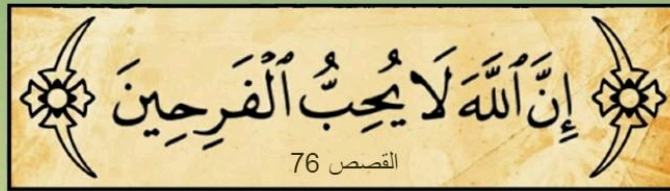 إِنَّ ٱللَّهَ لَا يُحِبُّ ٱلْفَرِحِينَ
القصص 76